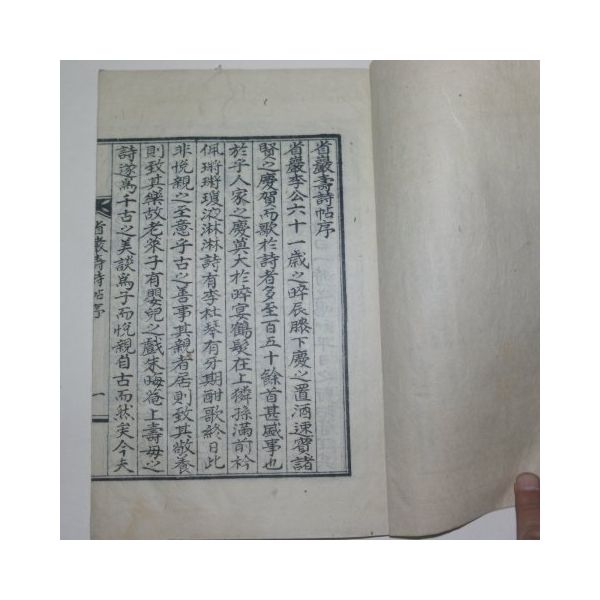 省巖壽詩帖序
省巖李公六十一歲之晬辰膝下慶之置酒速賓諸
賢之慶賀而歌於詩者多至一百五十餘首甚盛事也
於乎人家之慶莫大於晬宴鶴髮在上獜孫滿前衿
佩瑲瑲瓊泼淋淋詩有李杜琴有牙期酣歌終日此
非悅親之至意乎古之善事其親者居則致其敬養
則致其樂故老萊子有嬰兒之戲朱晦菴上壽母之
詩遂爲千古之美談爲子而悅親自古而然矣今夫
省巖壽詩帖序
一